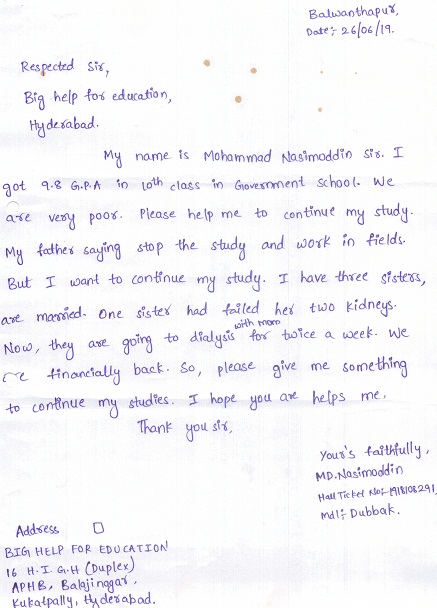 Balwanthapur,
Date:- 26/06/19.
Respected Sir,
Big help for education,
Hyderabad.
My name is Mohammad Nasimoddin Sir. I
got 9.8 G.P.A in 10th class in Government school. We
are very poor. Please help me to continue my study.
My father saying stop the study and work in fields.
But I want to continue my study. I have three sisters,
are married. One sister had failed her two kidneys.
with mom
Now, they are going to dialysis for twice a week. We
are financially back. So, please give me something
to continue my studies. I hope you are helps me.
Thank you sir,
Your's faithfully,
MD. Nasimoddin
Hall Ticket No:- 1918108291,
Mdl:- Dubbak.
Address
BIG HELP FOR EDUCATION
16 H.I.G.H (Duplex)
APHB, Balajinagar,
Kukatpally, Hyderabad.